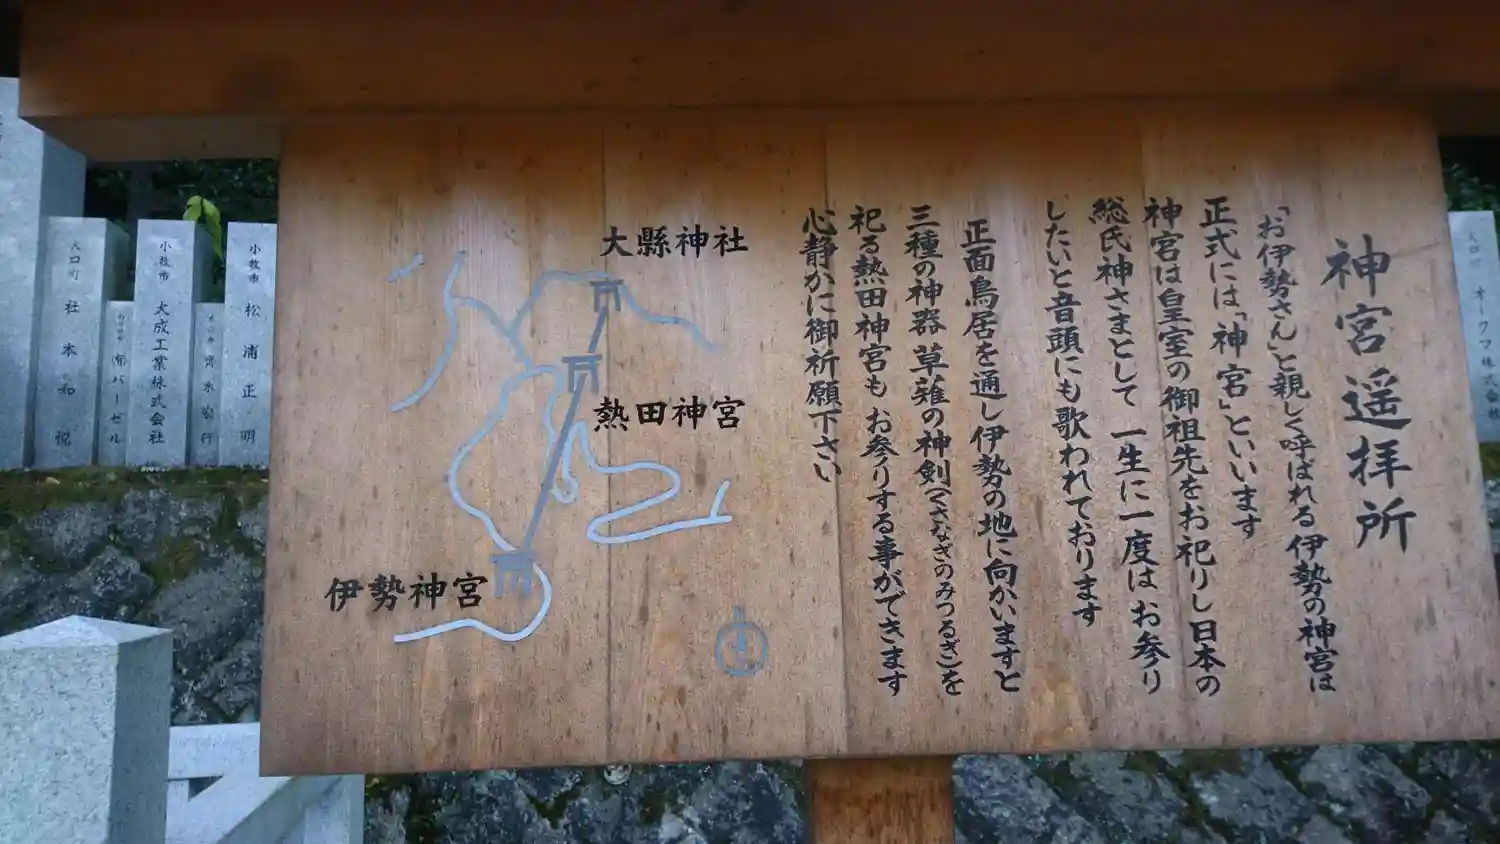 神宮遥拝所
「お伊勢さん」と親しく呼ばれる伊勢の神宮は
正式には「神宮」といいます
神宮は皇室の御祖先をお祀りし日本の
総氏神さまとして 一生に一度は お参り
したいと音頭にも歌われております
正面鳥居を通し伊勢の地に向かいますと
三種の神器 草薙の神剣(くさなぎのみつるぎ)を
祀る熱田神宮も お参りする事ができます
心静かに御祈願下さい
大縣神社
熱田神宮
伊勢神宮
小牧市 松浦正明
小牧市 大成工業株式会社
(有)バーゼル
大口町 社本和悦
オークワ株式会社